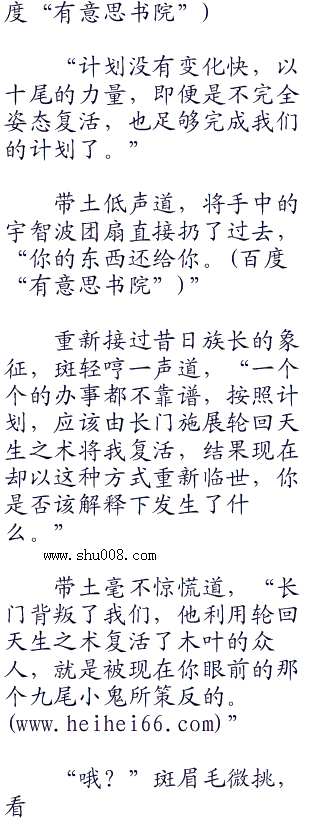 度“有意思书院”)
“计划没有变化快，以
十尾的力量，即便是不完全
姿态复活，也足够完成我们
的计划了。”
带土低声道，将手中的
宇智波团扇直接扔了过去，
“你的东西还给你。(百度
“有意思书院”)”
重新接过昔日族长的象
征，斑轻哼一声道，“一个
个的办事都不靠谱，按照计
划，应该由长门施展轮回天
生之术将我复活，结果现在
却以这种方式重新临世，你
是否该解释下发生了什
么。”
www.shu008.com
带土毫不惊慌道，“长
门背叛了我们，他利用轮回
天生之术复活了木叶的众
人，就是被现在你眼前的那
个九尾小鬼所策反的。
(www.heihei66.com)”
“哦？”斑眉毛微挑，
看